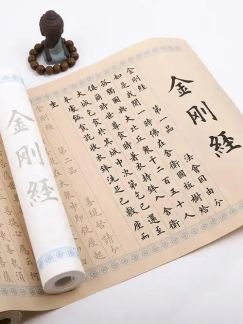 金剛經
第一品 法會因由分
如是我聞一時佛在舍衛國祇樹給
孤獨園與大比丘眾千二百五十人
俱爾時世尊食時著衣持缽入舍衛
大城乞食於其城中次第乞已還至
本處飯食訖收衣缽洗足已敷座而
坐
第二品 善現啟請分
金剛經